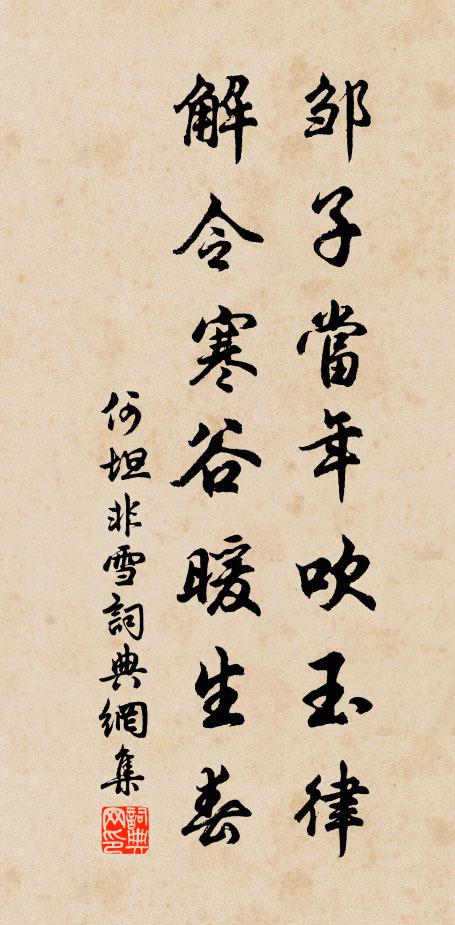 邹子當年吹玉律
解令寒谷暖生春
何坦非雪詞典網集
詞典网印